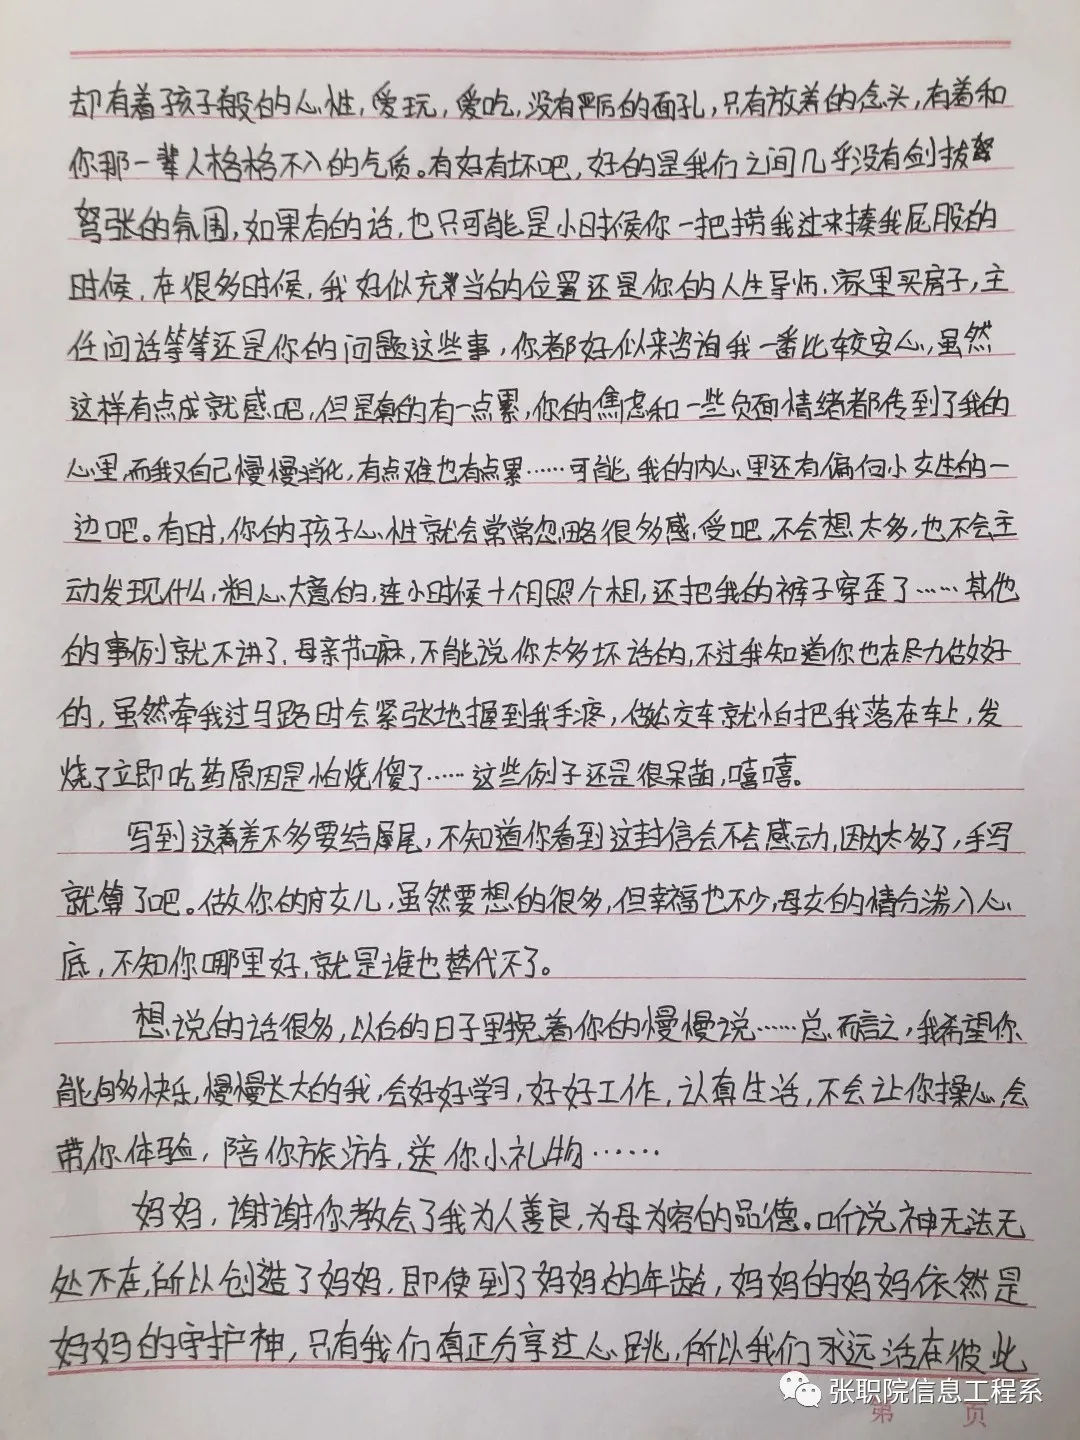 却有着孩子般的心性，爱玩，爱吃，没有严厉的面孔，只有放养的念头，有着和
你那一辈人格格不入的气质。有好有坏吧，好的是我们之间几乎没有剑拔
弩张的氛围，如果有的话，也只可能是小时候你一把捞我过来揍我屁股的
时候，在很多时候，我好似充当的位置还是你的人生导师，家里买房子，主
任问话等等还是你的问题这些事，你都好似来咨询我一番比较安心，虽然
这样有点成就感吧，但是真的有一点累，你的焦虑和一些负面情绪都传到了我的
心里，而我又自己慢慢消化，有点难也有点累……可能，我的内心里还有偏向小女生的一
边吧。有时，你的孩子心性就会常常忽略很多感受吧，不会想太多，也不会主
动发现什么，粗心大意的，连小时候十个月照个相，还把我的裤子穿歪了……其他
的事例就不讲了，母亲节嘛，不能说你太多坏话的，不过我知道你也在尽力做好
的，虽然牵我过马路时会紧张地握到我手疼，做公交车就怕把我落在车上，发
烧了立即吃药原因是怕烧傻了……这些例子还是很呆苗，嘻嘻。
写到这着差不多要结尾，不知道你看到这封信会不会感动，因为太多了，手写
就算了吧。做你的女儿，虽然要想的很多，但幸福也不少，母女的情分沸入心
底，不知你哪里好，就是谁也替代不了。
想说的话很多，以后的日子里挽着你的慢慢说……总而言之，我希望你
能够多快乐，慢慢长大的我，会好好学习，好好工作，认真生活，不会让你操心，会
带你体验，陪你旅游，送你小礼物……
妈妈，谢谢你教会了我为人善良，为母为容的品德。听说神无法无
处不在，所以创造了妈妈，即使到了妈妈的年龄，妈妈的妈妈依然是
妈妈的守护神，只有我们真正分享过心跳，所以我们永远活在彼此
张职院信息工程系
第 页